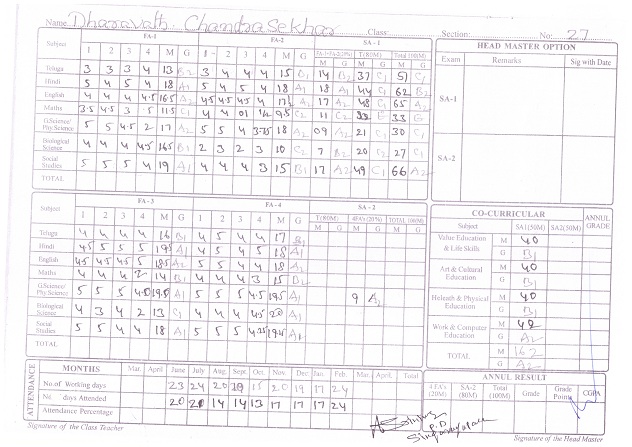 Name Dharavath. Chandrasekhar Class: Section: No: 27
Subject FA-1 FA-2 SA-1
1 2 3 4 M G 1 2 3 4 M G FA-1+FA-2(20%) T(80M) Total 100(M)
M G M G M G
Telugu 3 3 3 4 13 B2 3 4 4 4 15 B1 14 B2 37 C1 51 C1
Hindi 5 4 5 4 18 A1 5 4 5 4 18 A1 18 A1 44 C1 62 B2
English 4 4 4 4.5 16.5 A2 4.5 4.5 4.5 4 17 A2 17 A2 48 C1 65 A2
Maths 3.5 4.5 3 .5 11.5 C1 4 4 01 1/2 9.5 C2 11 C2 E 33 G
G.Science/ Phy.Science 5 5 4.5 2 17 A2 5 5 4 3.75 18 A2 09 A2 21 C2 30 C1
Biological Science 4 4 4 4.5 16.5 B1 2 3 2 3 10 C2 7 B2 20 C2 27 C1
Social Studies 5 5 5 4 19 A1 4 4 4 3 15 B1 17 A2 49 C1 66 A2
TOTAL
HEAD MASTER OPTION
Exam Remarks Sig with Date
SA-1
SA-2
Subject FA-3 FA-4 SA-2
1 2 3 4 M G 1 2 3 4 M G T(80M) 4FA's (20%) TOTAL 100(M)
M G M G M G
Telugu 4 4 4 4 16 B1 4 5 4 4 17 B
Hindi 4.5 5 5 5 19.5 A1 4 5 4 5 18 A1
English 4.5 4.5 4.5 5 18.5 A1 5 5 4 4 18 A1
Maths 4 4 4 2 14 B1 4 4 4 3 15 B
G.Science/ Phy.Science 5 5 5 4.5 19.5 A1 5 5 5 4.5 19.5 A1 9 A2
Biological Science 4 3 4 2 13 C1 4 4 4 A1
Social Studies 5 5 4 4 18 A1 5 5 5 4.25 A1
TOTAL
CO-CURRICULAR ANNUL GRADE
Subject SA1(50M) SA2(50M)
Value Education & Life Skills M 40
G B1
Art & Cultural Education M 40
G B1
Heleath & Physical Education M 40
G B1
Work & Computer Education M 42
G A2
TOTAL M 162
G A2
ATTENDANCE
MONTHS Mar. April June July Aug. Sept. Oct. Nov. Dec Jan. Feb. Mar. April. Total
No.of Working days 23 24 20 19 15 20 19 17 24
No. days Attended 20 20 14 14 13 17 17 17 24
Attendance Percentage
ANNUL RESULT
4 FA's (20M) SA-2 (80M) Total (100M) Grade Grade Points CGPA
P.D
Signature of the Class Teacher
Signature of the Head Master